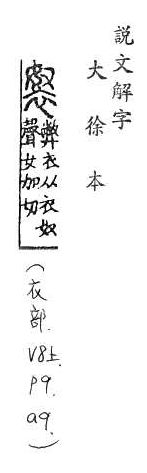 說文解字
大徐本
袽
弊衣从衣奴
聲女加切
(衣部.V8上.P9.a9.)